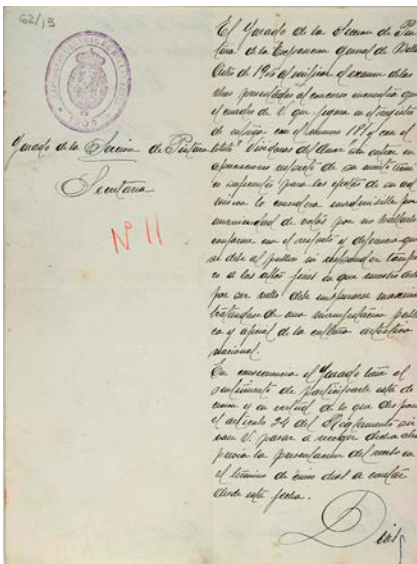 62/13
Jurado de la Sección de Pintura
Secretaria
Nº 11
El Jurado de la Seccion de Pin
tura de la Exposicion general de Bellas
Artes de 1906 al verificar el examen de las
obras presentadas al concurso encuentra que
el cuadro de V. que figura en el registro
de entrada con el numero 181 y con el
titulo " Vividoras del amor" sin entrar en
apreciaciones respecto de su merito tecni
co suficientes para los efectos de su ad
mision lo considera inadmisible por
unanimidad de votos por no hallarlo
conforme con el respeto y deferencia que
se debe al publico ni responder tampo
co a los altos fines en que nuestro arte
por ser noble debe inspirarse maxime
tratandose de una manifestacion publi
ca y oficial de la cultura artistica
nacional.
En consecuencia el Jurado tiene el
sentimiento de participarle esta de
cision y en virtud de lo que dispone
el articulo 24 del Reglamento sir
vase V. pasar a recoger dicha obra
previa la presentacion del recibo en
el termino de cinco dias a contar
desde esta fecha.
Dios